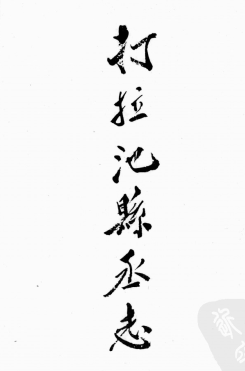 打拉池縣丞志